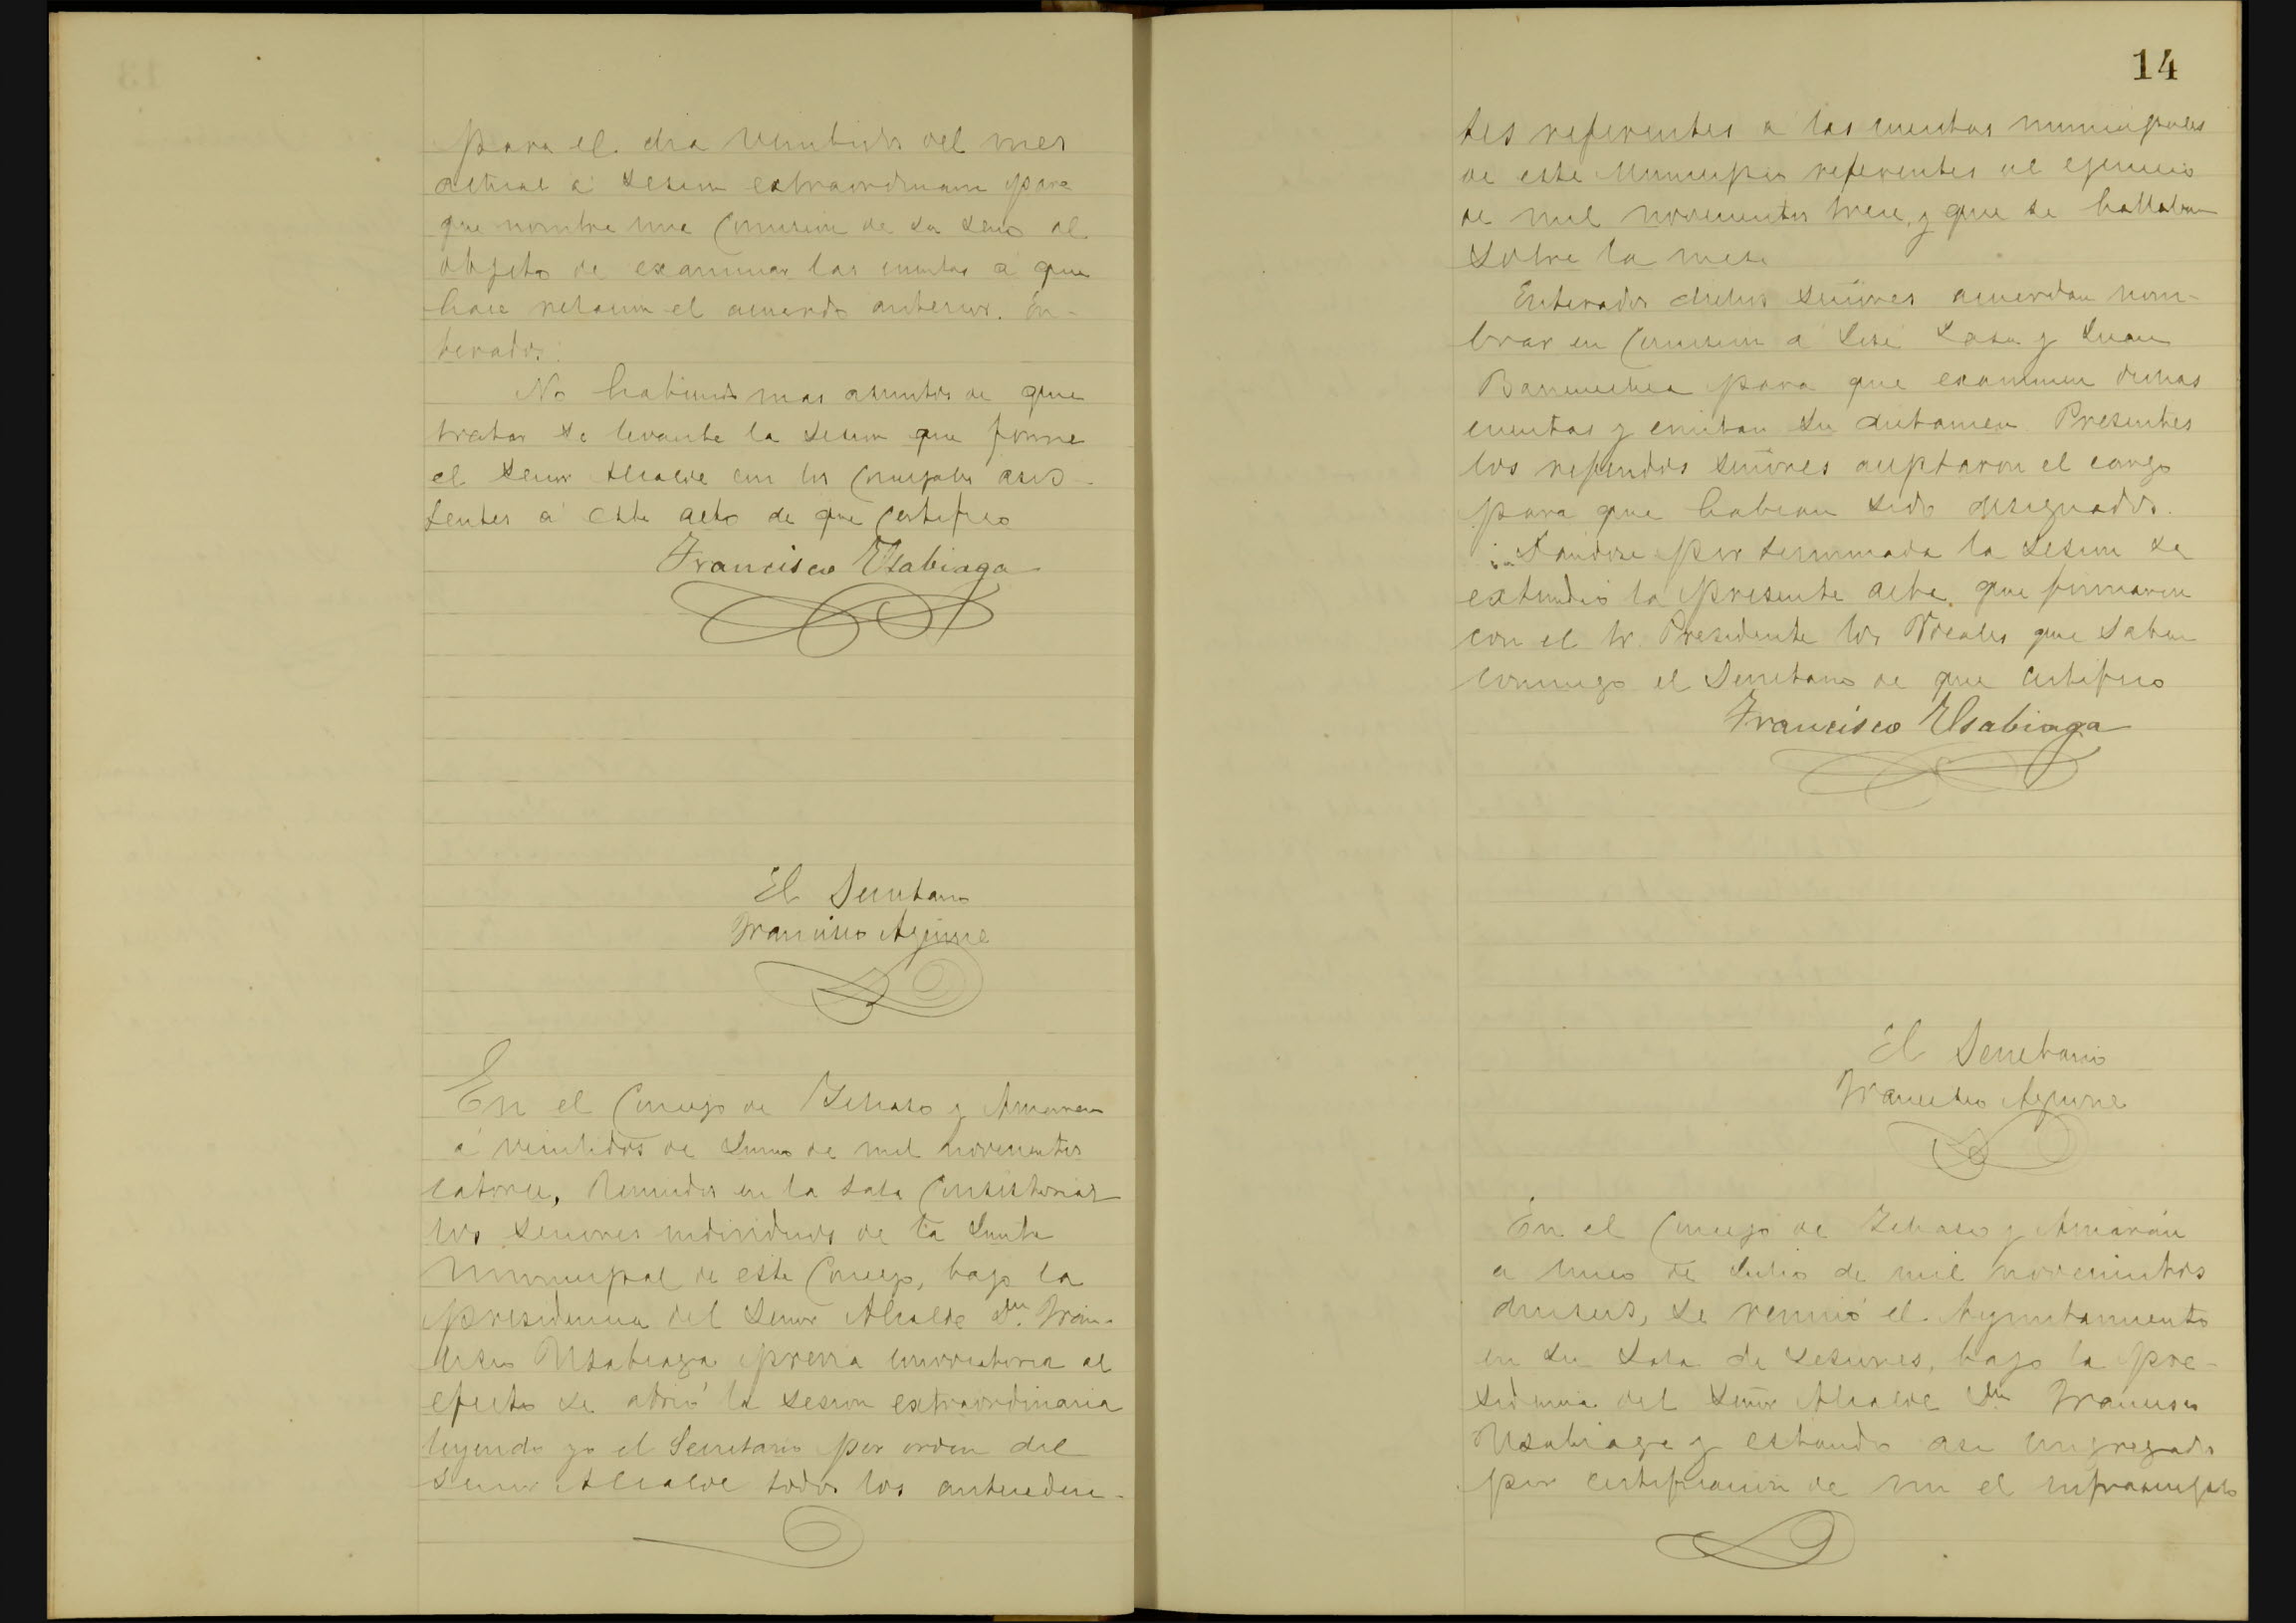 para el dia veintidos del mes
actual á sesion extraordinaria para
que nombre una Comision de su seno al
objeto de examinar las cuentas a que
hace relacion el acuerdo anterior. En-
terados.
No habiendo mas asuntos de que
tratar se levanta la sesion que firma
el Señor Alcalde con los Concejales asis-
tentes á este acto de que Certifico
Francisco Usabiaga
El Secretario
Francisco Aguirre
En el Concejo de Ichaso y Amaran
á veintidos de Junio de mil novecientos
catorce, Reunidos en la Sala Consistorial
los Señores individuos de la Junta
Municipal de este Concejo, bajo la
presidencia del Señor Alcalde Dn. Fran-
cisco Usabiaga previa convocatoria al
efecto se abrió la sesion extraordinaria
leyendo yo el Secretario por orden del
Señor Alcalde todos los anteceden-
14
tes referentes a las cuentas municipales
de este Municipio referentes al ejercicio
de mil novecientos trece, y que se hallaban
sobre la mesa.
Enterados dichos señores acuerdan nom-
brar en Comision á José Lasa y Juan
Barrenechea para que examinen dichas
cuentas y emitan su dictamen. Presentes
los referidos señores aceptaron el cargo
para que habian sido designados.
Dandose por terminada la sesion se
extendió la presente acta, que firmaron
con el Sr. Presidente los Vocales que saben
conmigo el Secretario de que certifico
Francisco Usabiaga
El Secretario
Francisco Aguirre
En el Concejo de Ichaso y Amarán
a cinco de Julio de mil novecientos
dieciseis, se reunió el Ayuntamiento
en su Sala de sesiones, bajo la pre-
sidencia del Señor Alcalde Dn Francisco
Usabiaga y estando asi congregados
por certificacion de mi el infrascripto